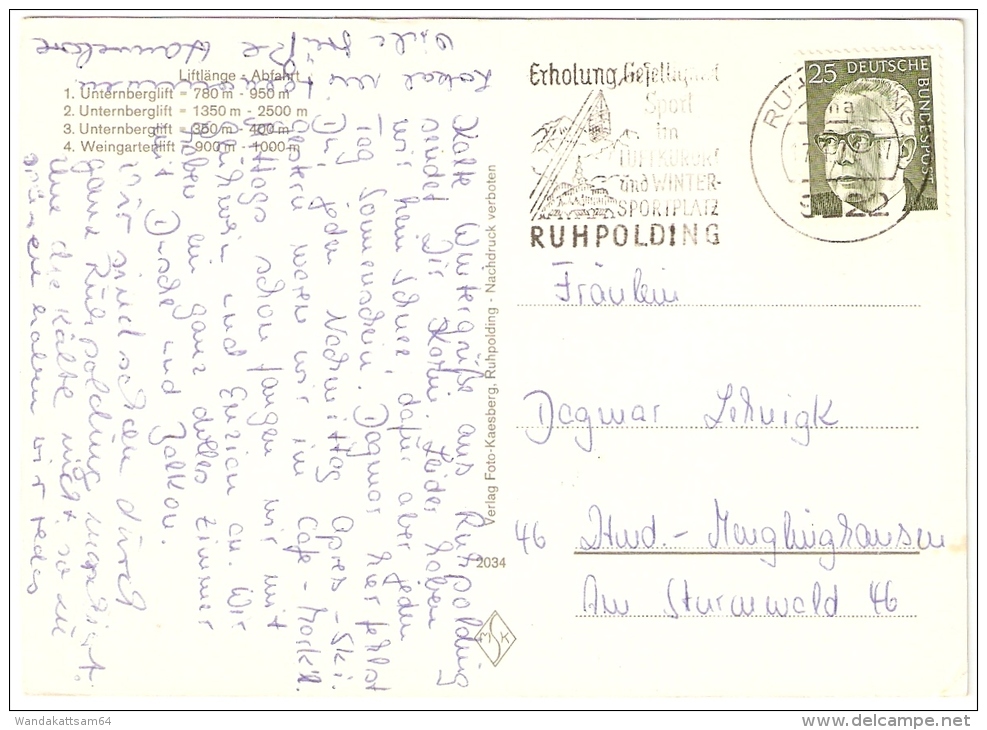 Liftlänge - Abfahrt
1. Unternberglift = 780 m - 950 m
2. Unternberglift = 1350 m - 2500 m
3. Unternberglift = 350 m - 400 m
4. Weingartenlift = 900 m - 1000 m
Kalte Wintergrüße aus Ruhpolding
sendet Dir Karin. Leider haben
wir kein Schnee, dafür aber jeden
Tag Sonnenschein. Dagmar hier fehlst
Du! Jeden Nachmittag Apres-Ski.
Gestern waren wir im Cafe-
Mittags schon fangen wir mit
Glühwein und Enzian an. Wir
haben ein ganz dolles Zimmer
mit Dusche und Balkon.
Wir sind schon durch
ganz Ruhpolding marschiert.
Um die Kälte nicht so zu
spüren haben wir jedes
Lokal
Viele Grüße Hannelore
Verlag Foto-Kaesberg, Ruhpolding - Nachdruck verboten
2034
MSK
Erholung, Geselligkeit
Sport
im
LUFTKURORT
und WINTER-
SPORTPLATZ
RUHPOLDING
25 DEUTSCHE BUNDESPOST
Fräulein
Dagmar Lehnigk
46 Dtmd.- Menglinghausen
Am Sturmwald 46
Wandakattsam64
www.delcampe.net